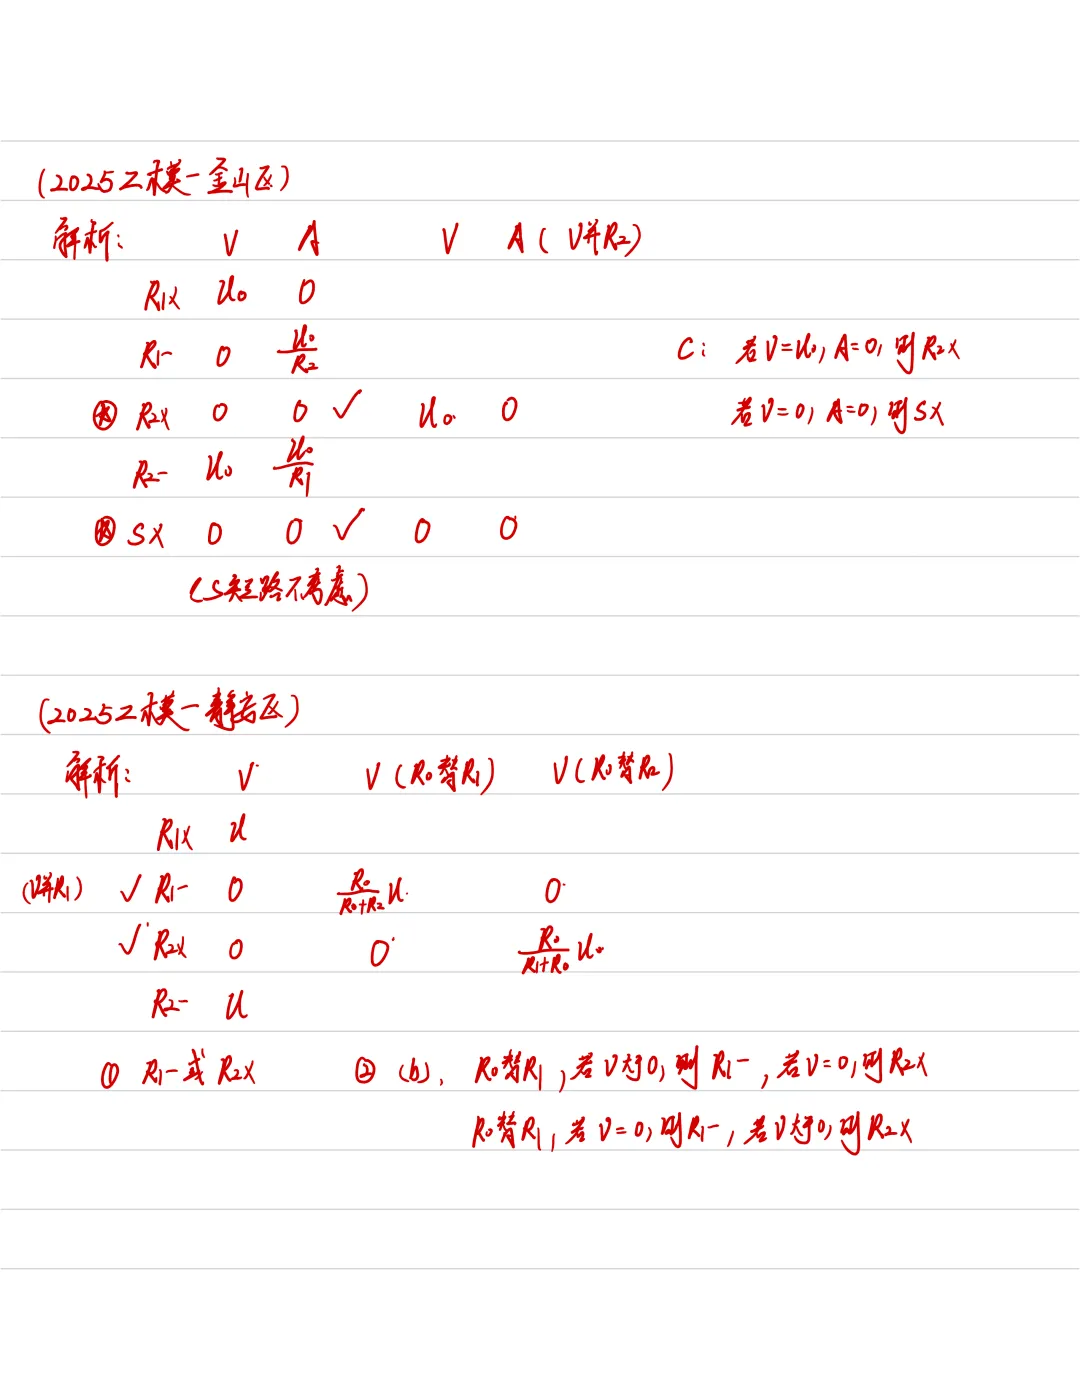 (2025二模一金山区)
解析: V A V A ( V并R₂)
R₁× U₀ 0
R₁- 0 U₀/R₂ C: 若V=U₀, A=0, 则R₂×
R₂× 0 0 ✓ U₀ 0 若V=0, A=0, 则S×
R₂- U₀ U₀/R₁
S× 0 0 ✓ 0 0
(S短路不考虑)
(2025二模一静安区)
解析: V V (R₀替R₁) V (R₀替R₂)
R₁× U
(V并R₁) ✓ R₁- 0 R₀/R₀+R₂ U 0
✓ R₂× 0 0 R₀/R₁+R₀ U₀
R₂- U
① R₁-或 R₂× ② (b), R₀替R₁, 若V大于0, 则 R₁-, 若V=0, 则R₂×
R₀替R₁, 若V=0, 则R₁-, 若V大于0, 则R₂×